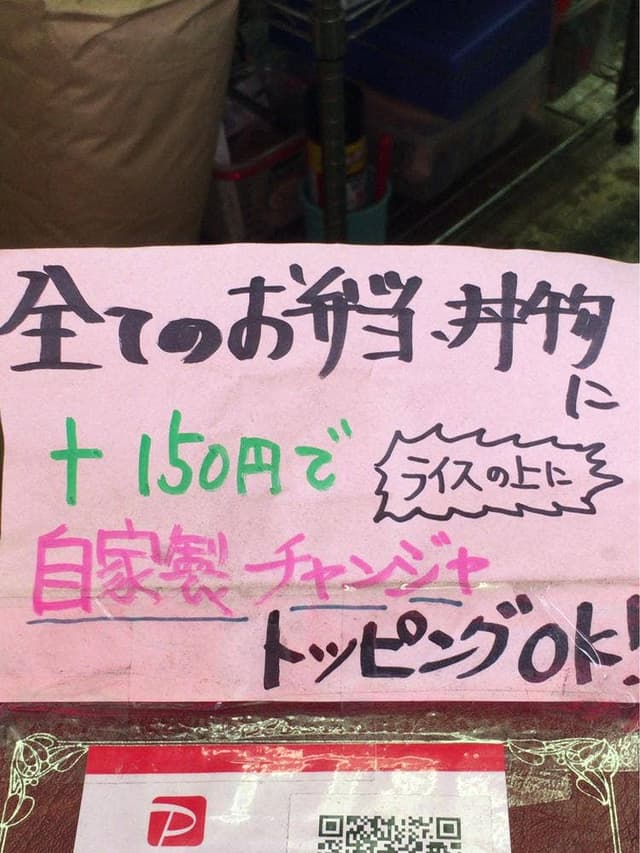 全てのお弁当、丼物
に
+150円で
ライスの上に
自家製チャンジャ
トッピングOK!
P